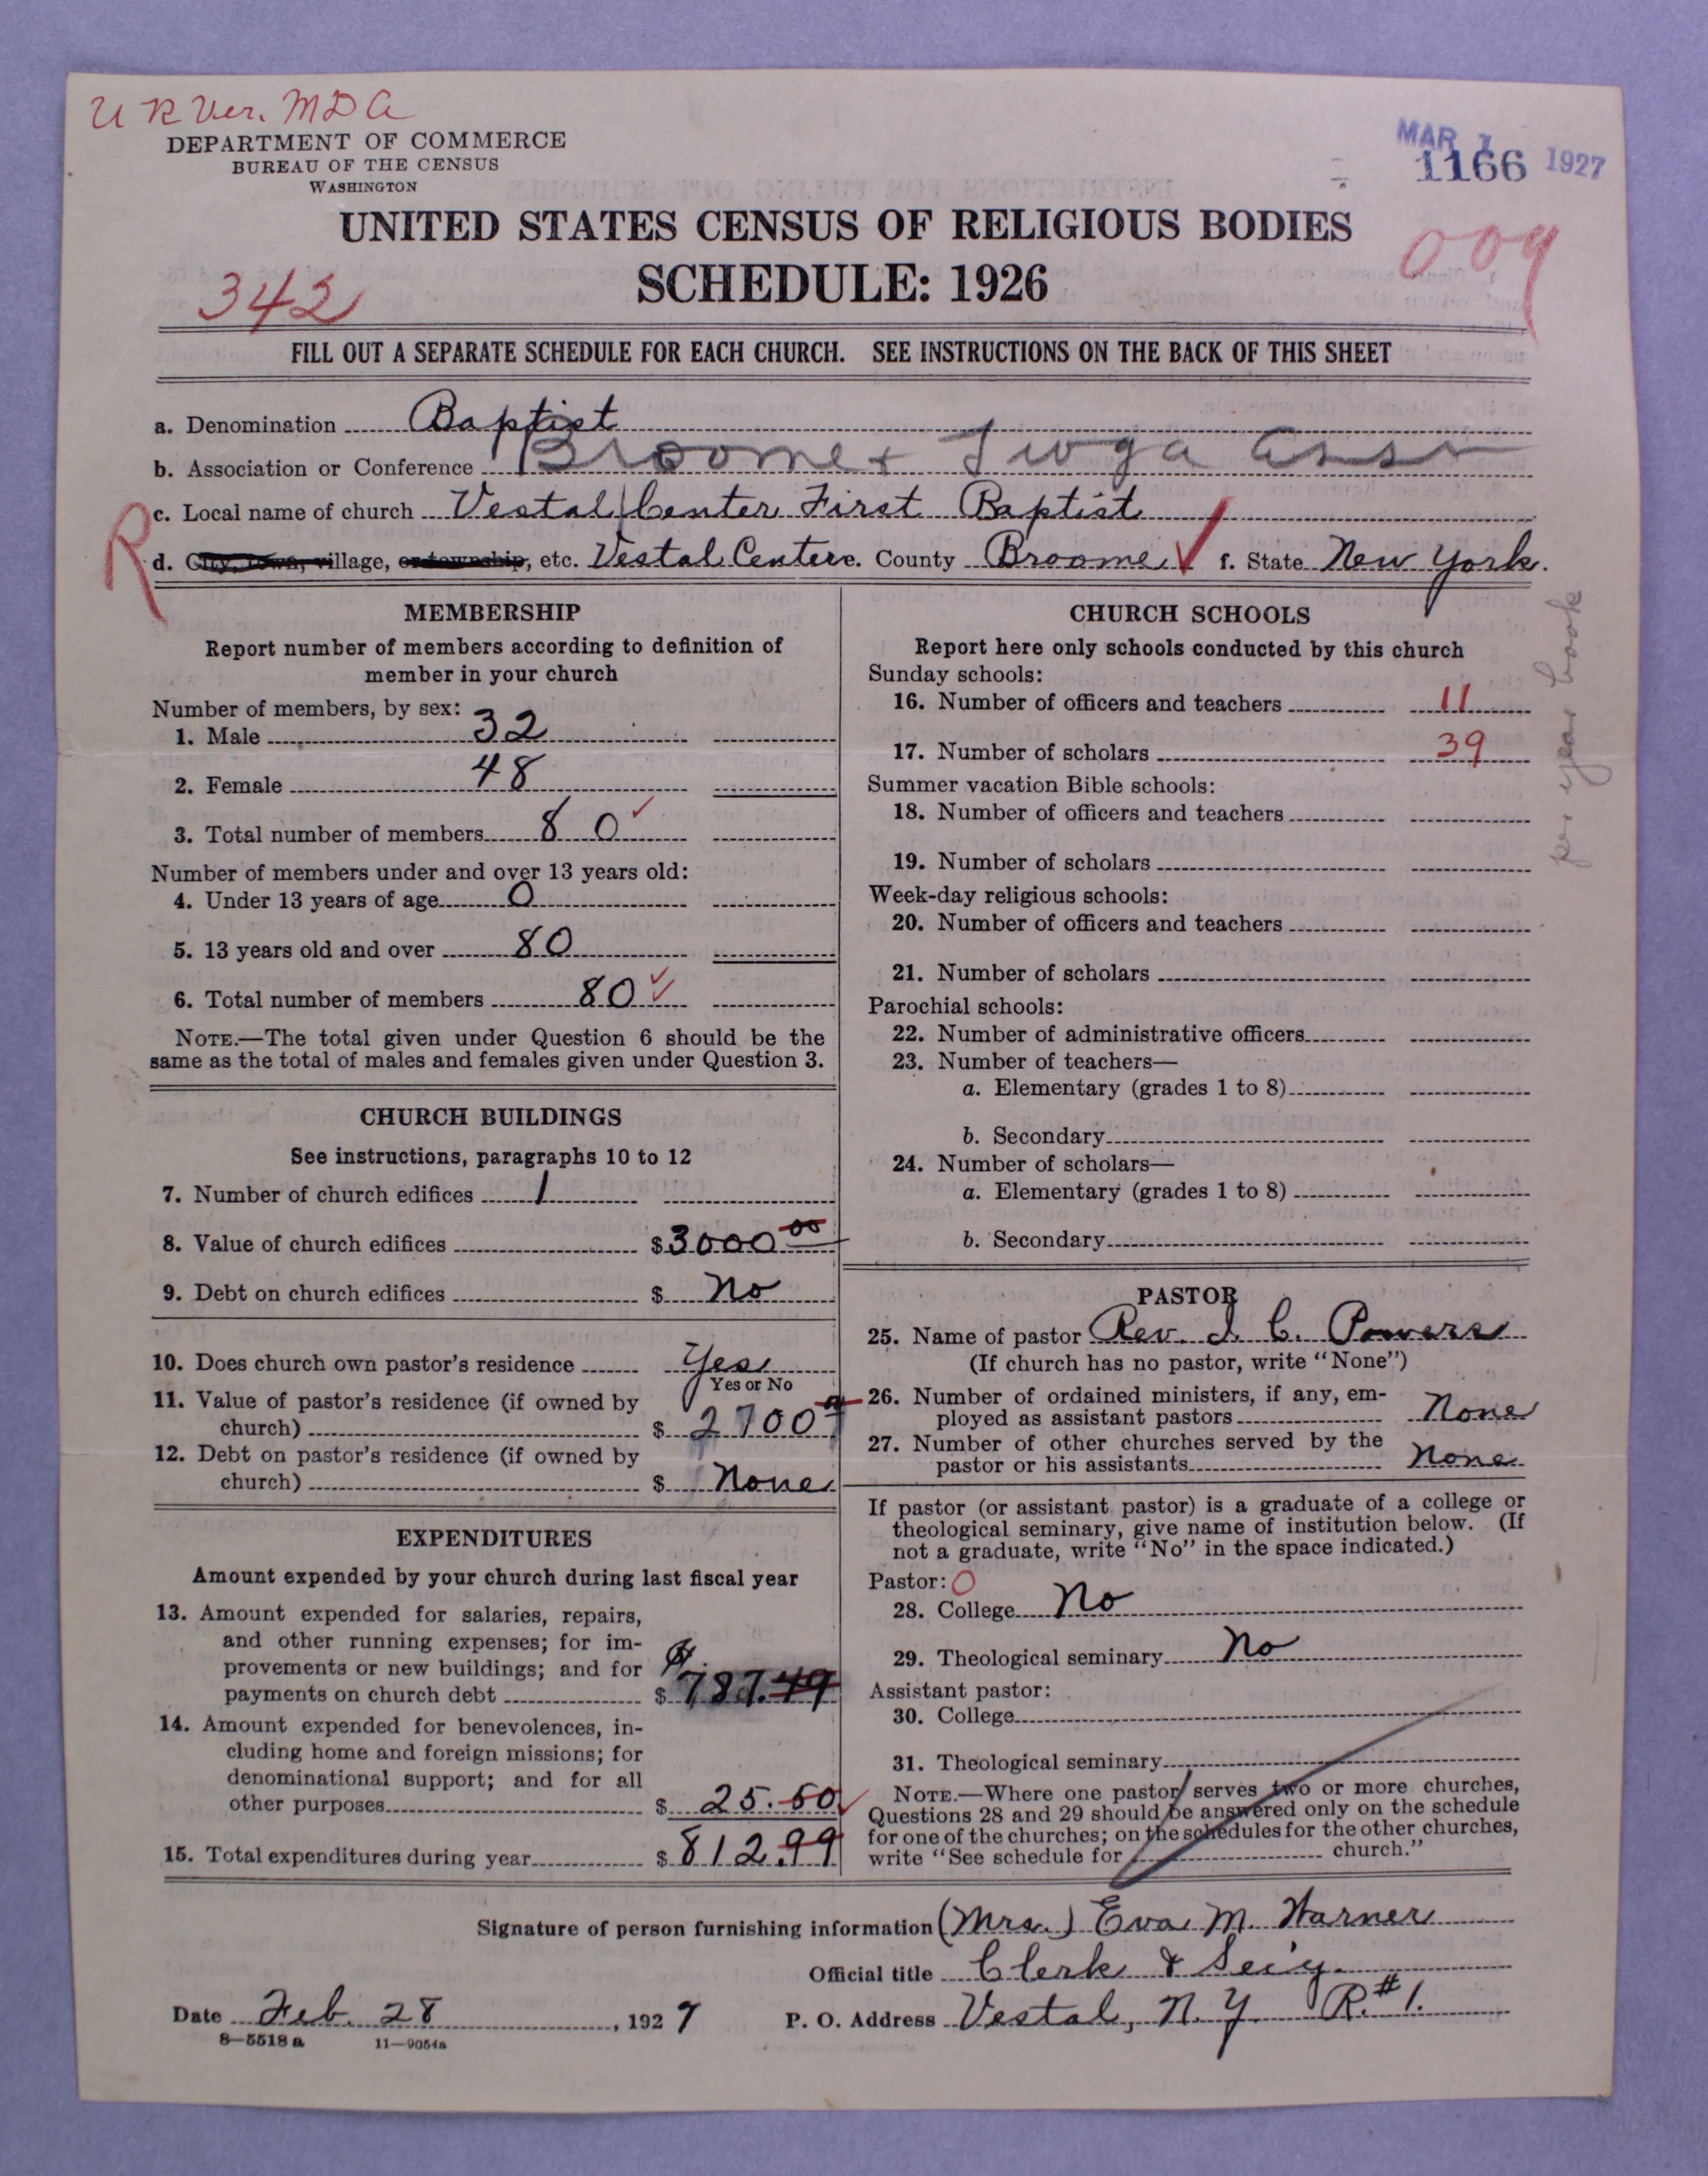 U R Ver. M D A
DEPARTMENT OF COMMERCE
BUREAU OF THE CENSUS
WASHINGTON
MAR 1 1927
1166
UNITED STATES CENSUS OF RELIGIOUS BODIES
SCHEDULE: 1926
342
009
FILL OUT A SEPARATE SCHEDULE FOR EACH CHURCH. SEE INSTRUCTIONS ON THE BACK OF THIS SHEET
a. Denomination Baptist
b. Association or Conference Broome & Tioga Assn
R
c. Local name of church Vestal Center First Baptist
d. City, town, village, or township, etc. Vestal Center e. County Broome f. State New York.
MEMBERSHIP
Report number of members according to definition of
member in your church
Number of members, by sex:
1. Male 32
2. Female 48
3. Total number of members 80
Number of members under and over 13 years old:
4. Under 13 years of age 0
5. 13 years old and over 80
6. Total number of members 80
NOTE.—The total given under Question 6 should be the
same as the total of males and females given under Question 3.
CHURCH BUILDINGS
See instructions, paragraphs 10 to 12
7. Number of church edifices 1
8. Value of church edifices $3000 00
9. Debt on church edifices $ No
10. Does church own pastor's residence Yes
Yes or No
11. Value of pastor's residence (if owned by
church) $ 2700
12. Debt on pastor's residence (if owned by
church) $ None
EXPENDITURES
Amount expended by your church during last fiscal year
13. Amount expended for salaries, repairs,
and other running expenses; for im-
provements or new buildings; and for
payments on church debt $ 787.49
14. Amount expended for benevolences, in-
cluding home and foreign missions; for
denominational support; and for all
other purposes $ 25.50
15. Total expenditures during year $ 812.99
CHURCH SCHOOLS
Report here only schools conducted by this church
Sunday schools:
16. Number of officers and teachers 11
17. Number of scholars 39
pr year book
Summer vacation Bible schools:
18. Number of officers and teachers
19. Number of scholars
Week-day religious schools:
20. Number of officers and teachers
21. Number of scholars
Parochial schools:
22. Number of administrative officers
23. Number of teachers—
a. Elementary (grades 1 to 8)
b. Secondary
24. Number of scholars—
a. Elementary (grades 1 to 8)
b. Secondary
PASTOR
25. Name of pastor Rev. J. C. Powers
(If church has no pastor, write "None")
26. Number of ordained ministers, if any, em-
ployed as assistant pastors None
27. Number of other churches served by the
pastor or his assistants None
If pastor (or assistant pastor) is a graduate of a college or
theological seminary, give name of institution below. (If
not a graduate, write "No" in the space indicated.)
Pastor: 0
28. College No
29. Theological seminary No
Assistant pastor:
30. College
31. Theological seminary
NOTE.—Where one pastor serves two or more churches,
Questions 28 and 29 should be answered only on the schedule
for one of the churches; on the schedules for the other churches,
write "See schedule for church."
Signature of person furnishing information (Mrs.) Eva M. Warner
Official title Clerk & Sec'y.
Date Feb. 28, 1927 P. O. Address Vestal, N. Y. R. #1.
8—5518 a 11—9054a